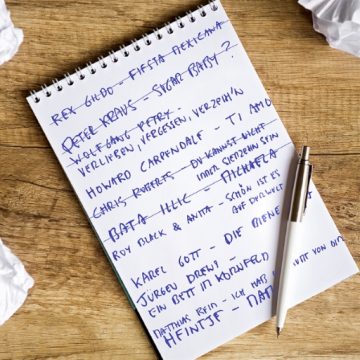 REX GILDO - FIESTA MEXICANA
PETER KRAUS - SUGAR BABY?
WOLFGANG PETRY -
VERLIEBEN, VERGESSEN, VERZEIH'N
HOWARD CARPENDALE - TI AMO
CHRIS ROBERTS - DU KANNST NICHT
IMMER SIEBZEHN SEIN
BATA ILLIC - MICHAELA
ROY BLACK & ANITA - SCHÖN IST ES
AUF DER WELT
KAREL GOTT - DIE BIENE
JÜRGEN DREWS -
EIN BETT IM KORNFELD
MATTHIAS REIM - ICH HAB
HEINTJE - MA